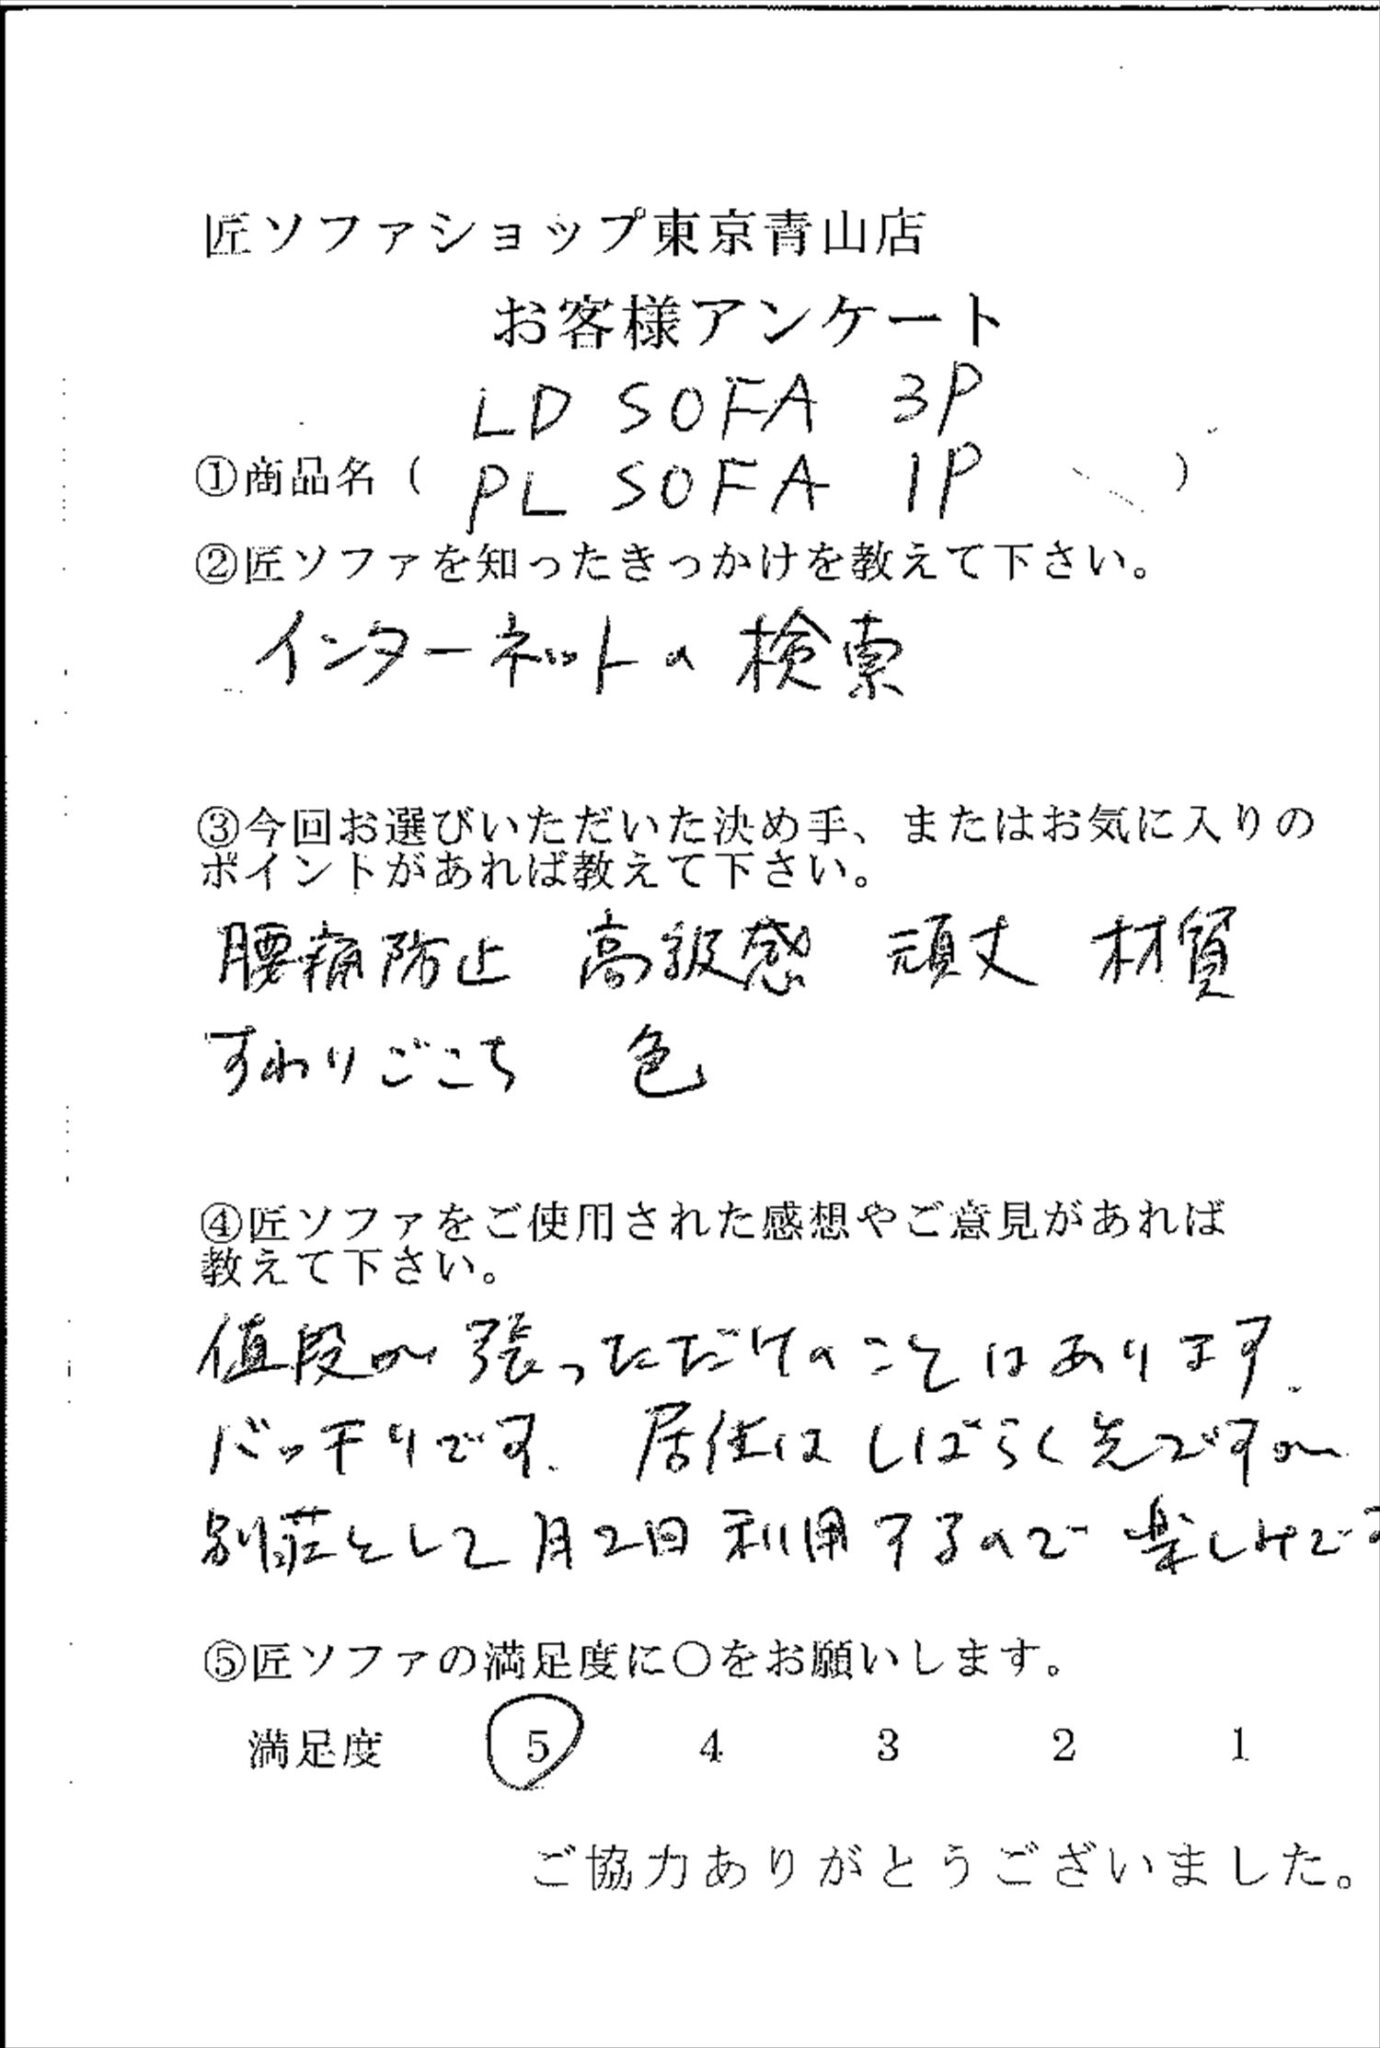 匠ソファショップ東京青山店
お客様アンケート
LD SOFA 3P
①商品名( PL SOFA 1P )
②匠ソファを知ったきっかけを教えて下さい。
インターネットの検索
③今回お選びいただいた決め手、またはお気に入りの
ポイントがあれば教えて下さい。
腰痛防止 高級感 頑丈 材質
すわりごこち 色
④匠ソファをご使用された感想やご意見があれば
教えて下さい。
値段が張っただけのことはあります.
バッチリです. 居住はしばらく先ですが
別荘として月2日利用するので楽しみです
⑤匠ソファの満足度に〇をお願いします。
満足度 5 4 3 2 1
ご協力ありがとうございました。